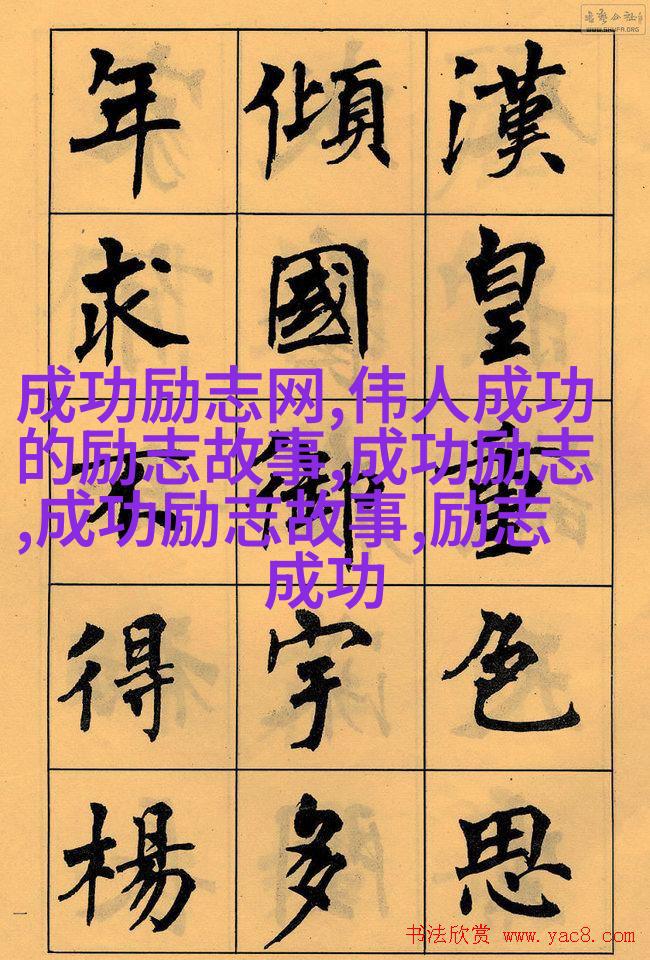 漢皇重色思
傾國御宇多
年求不得楊
成功励志网,伟人成功
的励志故事,成功励志
,成功励志故事,励志
成功
一
WWW.SHUFA.ORG
书法欣赏 www.yac8.com